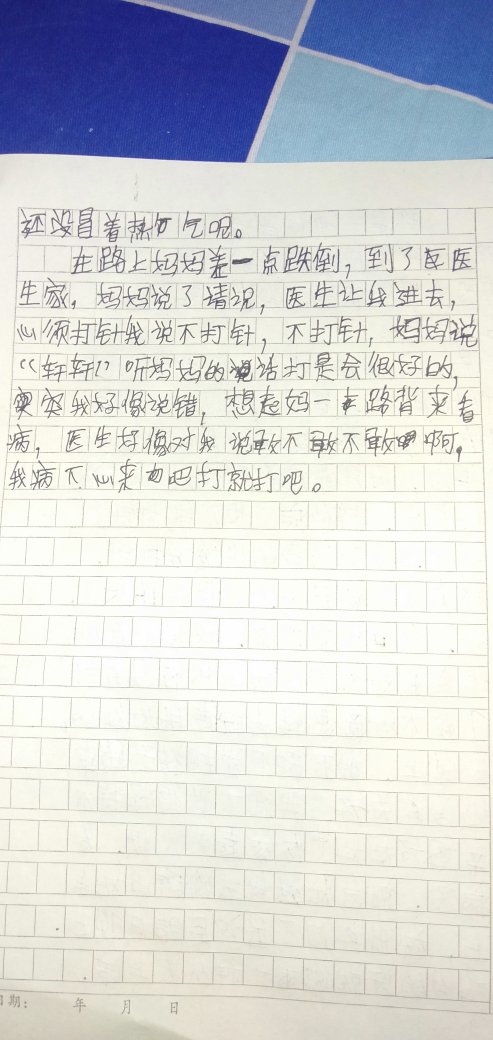 还没冒着热气呢。
在路上妈妈差一点跌倒，到了医
生家，妈妈说了请况，医生让我进去，
心须打针我说不打针，不打针，妈妈说
“轩轩”听妈妈的话打是会很好的，
突我好像说错，想起妈一路背来看
病，医生好像对我说敢不敢不敢啊。
我病下心来吧打就打吧。
日期： 年 月 日